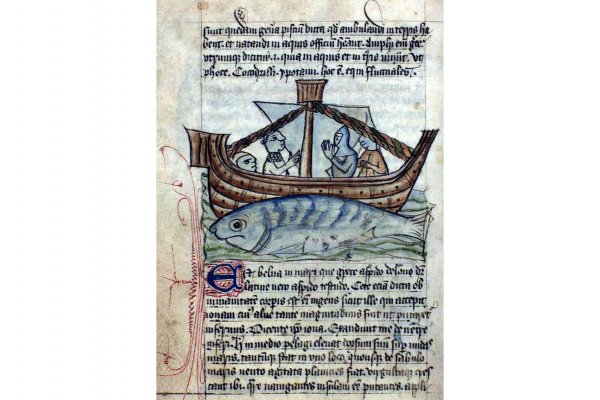 sunt quedam gen̄a pisciū dicta qđ ambulandi in terris ha
bent. et natandi in aquis officiū Amphi em̄ gre
dicitur .i. quia in aquis et in t̄ris uiuūt. Vt
phoce. Cocodrilli. ypotami. hoc ē. equi fluctuales.
Est belua in mari que grece aspido delone dr̄
latine uero aspido testudo. Cete eciā dicta ob
inmanitatem corpis est em̄ ingens sicut ille qui accepit
ionam cui' alue tante magnitudinis fuit ut putaret
infernus. Dicente ip̄o iona. Exaudiuit me de uentre
inferi. in medio pelagi eleuat dorsum suū sup undas
maris. stat in uno loco. quousque de sabulo
maris uento agitata planicies fiat. cres
cant ibi. nauigantes insulam eē putantes. appli